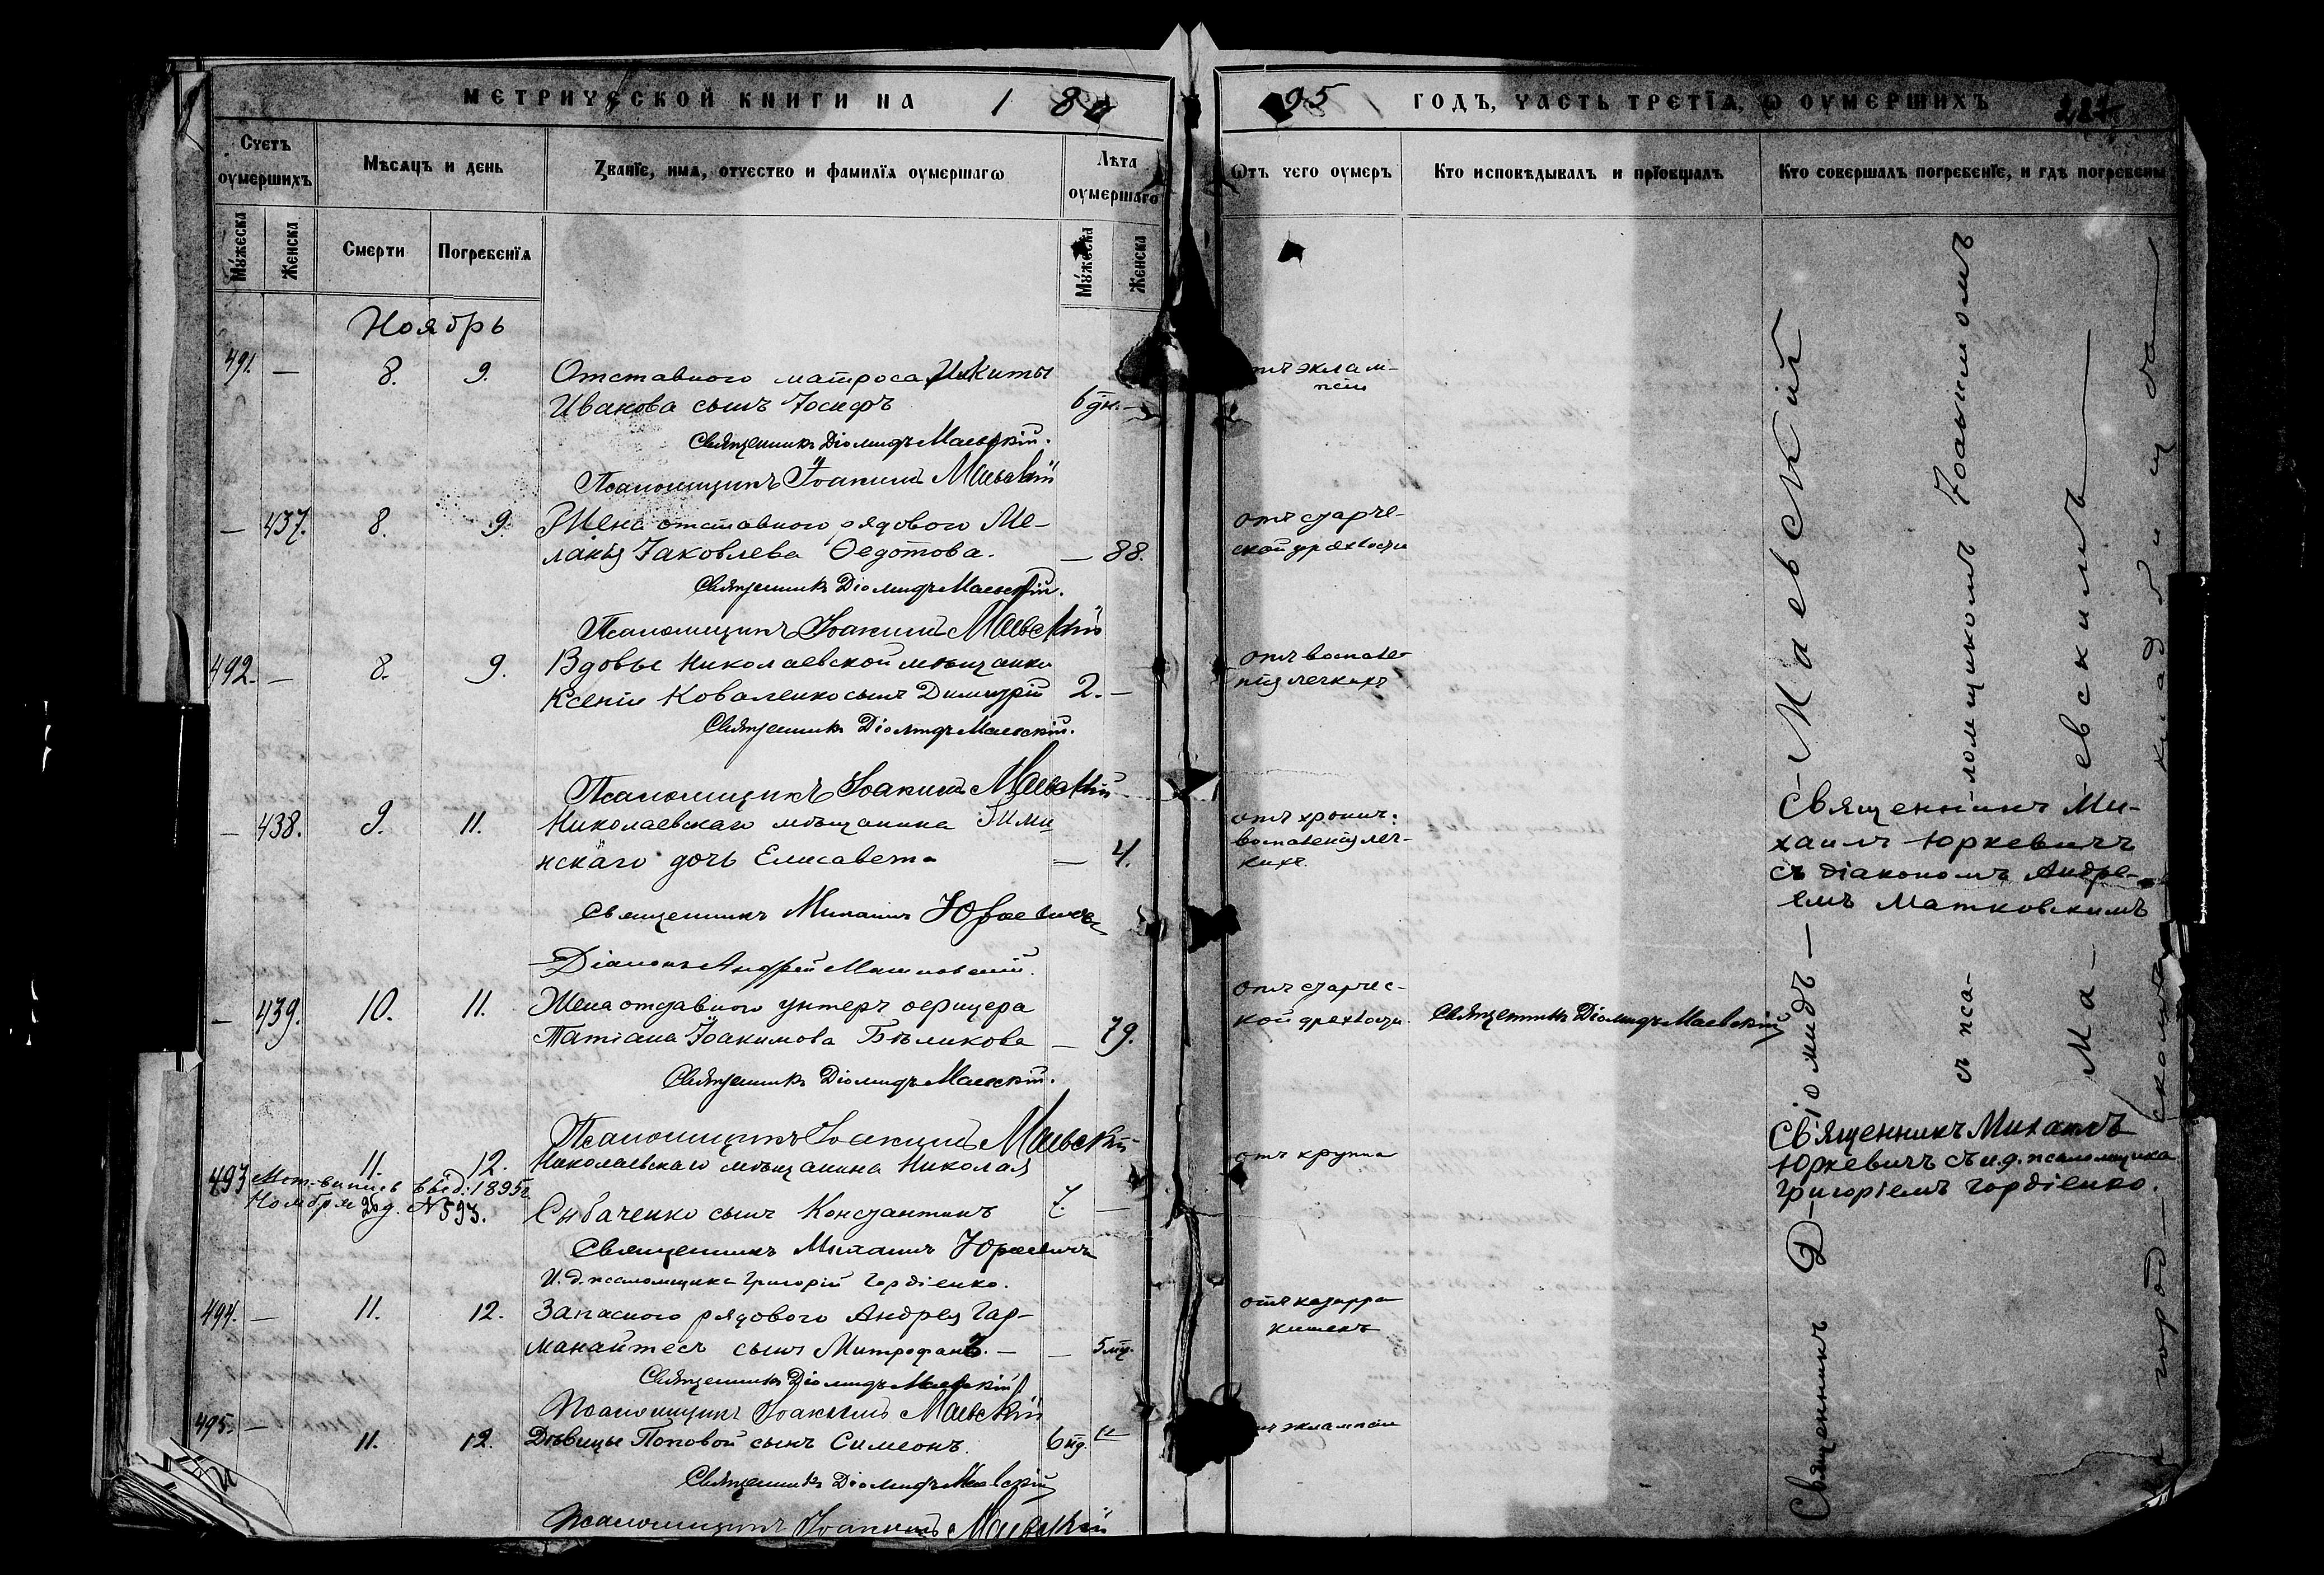 МЕТРИЧЕСКОЙ КНИГИ НА 1895 ГОДЪ, ЧАСТЬ ТРЕТЇѦ, Ѡ ОУМЕРШИХЪ
Счетъ оумершихъ
Мѣсяцъ и день
Званїе, имѧ, отчество и фамилїѧ оумершагѡ
Лѣта оумершаго
Ѿтъ чего оумеръ
Кто исповѣдывалъ и прїобщалъ
Кто совершалъ погребенїе, и гдѣ погребены
Мужеска
Женска
Смерти
Погребенїѧ
Мужеска
Женска
Ноябрь
491. — 8. 9. Отставного матроса Никиты
Иванова сынъ Іосифъ 6 дн. —
отъ эклам-
псіи
Священникъ Діомидъ Маевскій.
Псаломщикъ Іоакимъ Маевскій
— 437. 8. 9. Жена отставного рядового Ме-
ланія Іаковлева Федотова. — 88.
отъ старче-
ской дряхлости
Священникъ Діомидъ Маевскій.
Псаломщикъ Іоакимъ Маевскій
492. — 8. 9. Вдовы Николаевской мѣщанки
Ксеніи Коваленко сынъ Димитрій 2. —
отъ воспале-
нія легкихъ
Священникъ Діомидъ Маевскій.
Псаломщикъ Іоакимъ Маевскій
— 438. 9. 11. Николаевскаго мѣщанина
нскаго дочь Елисавета — 4.
отъ хронич.
воспаленія лег-
кихъ.
Священникъ Ми-
хаилъ Юркевичъ
съ діакономъ Андре-
емъ Матковскимъ
Священникъ Михаилъ Юркевичъ
Діаконъ Андрей Матковскій.
— 439. 10. 11. Жена отставного унтеръ офицера
Татіана Іоакимова Бѣликова — 79.
отъ старчес-
кой дряхлости.
Священникъ Діомидъ Маевскій
Священникъ Діомидъ Маевскій.
Псаломщикъ Іоакимъ Маевскій
493 11. 12. Николаевскаго мѣщанина Николая
Мет. выпись выд. 1895 г.
Ноября 20 д. № 593.
Сибаченко сынъ Константинъ 7. —
отъ крупа
Священникъ Михаилъ
Юркевичъ съ и.д. псаломщика
Григоріемъ Гордіенко.
Священникъ Михаилъ Юркевичъ
И. д. псаломщика Григорій Гордіенко.
494. — 11. 12. Запаснаго рядового Андрея Гар-
манайтесъ сынъ Митрофанъ. — — 5 мц.
отъ катарра
кишекъ
Священникъ Діомидъ Маевскій
Псаломщикъ Іоакимъ Маевскій
495. — 11. 12. Дѣвицы Поповой сынъ Симеонъ. 6 нд. —
отъ эклампсіи
Священникъ Діомидъ Маевскій
Псаломщикъ Іоакимъ Маевскій
Священникъ Діомидъ — Маевскій
съ пса-ломщикомъ Іоакимомъ
Ма-евскимъ —
городскомъ кладбищѣ